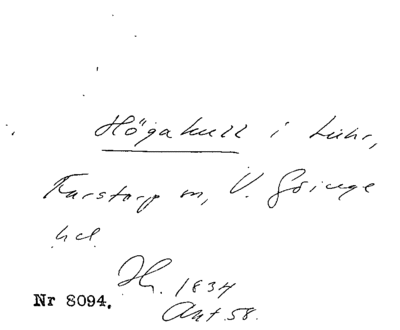 Högakull i Luhr,
Farstorp sn, V. Göinge
hd
Jh. 1834
Ant 58.
Nr 8094.